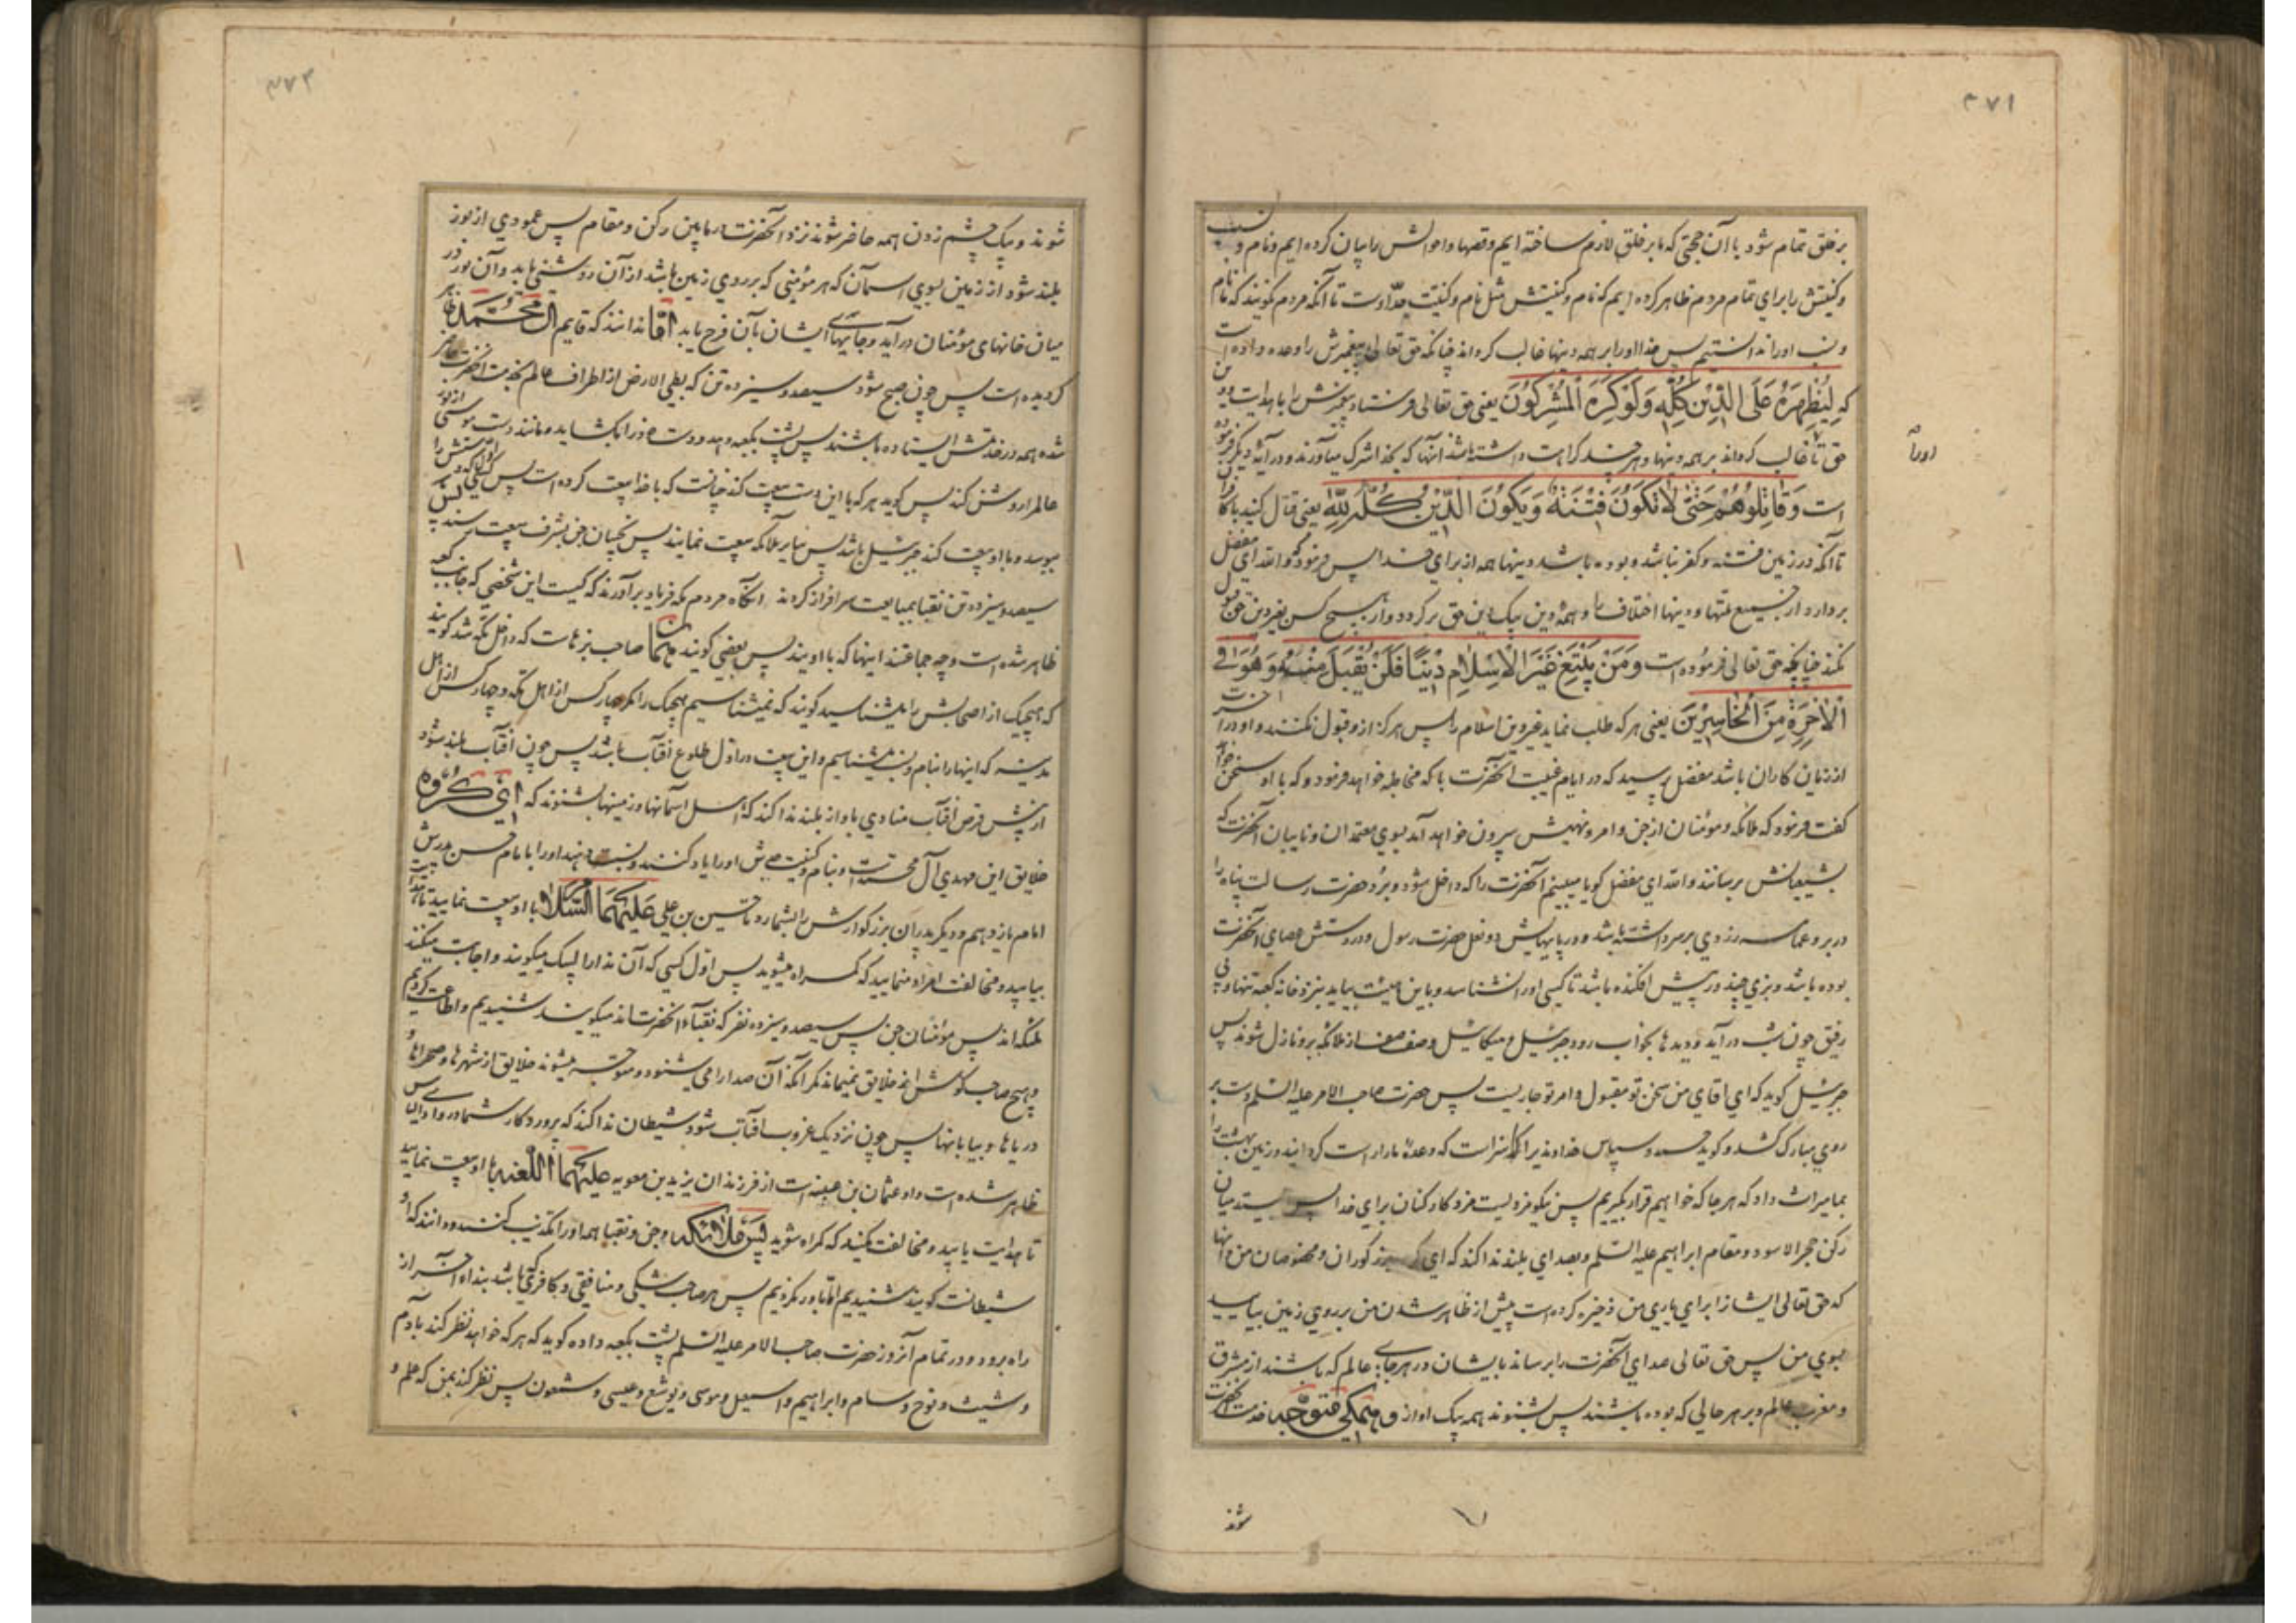 ۳۷۱
بر خلق تمام شود با آن حجتی که ما بر خلق لازم ساخته ایم و قصها و احوالش را بیان کرده ایم و نام و نسب
و کنیتش را برای تمام مردم ظاهر کرده ایم که نام و کنیتش مثل نام و کنیت جد اوست تا آنکه مردم نگویند که نام
و نسب او را ندانستیم پس خدا او را بر همه دینها غالب گرداند چنانکه حق تعالی پیغمبرش را وعده داده است
که لِیُظْهِرَهُ عَلَی الدِّینِ کُلِّهِ وَلَوْ کَرِهَ الْمُشْرِکُونَ یعنی حق تعالی فرستاد پیغمبرش را با هدایت و دین
حق تا غالب گرداند بر همه دینها و هر چند کراهت داشته باشد آنها که بخدا شرک میآورند و در آیهٔ دیگر فرموده
اورا
است وَقَاتِلُوهُمْ حَتَّی لَا تَکُونَ فِتْنَةٌ وَیَکُونَ الدِّینُ کُلُّهُ لِلَّهِ یعنی قتال کنید با کافران
تا آنکه در زمین فتنه و کفر نباشد و بوده باشد دینها همه از برای خدا پس فرمود که والله ای مفضل
بردارد از جمیع ملتها و دینها اختلاف را و همه دین یک دین حق برگردد و از هیچ کس بغیر دین حق قبول
نکند چنانچه حق تعالی فرموده است وَمَنْ یَبْتَغِ غَیْرَ الْاِسْلَامِ دِینًا فَلَنْ یُقْبَلَ مِنْهُ وَهُوَ فِی
الْآخِرَةِ مِنَ الْخَاسِرِینَ یعنی هر که طلب نماید غیر دین اسلام را پس هرگز از و قبول نکنند و او در آخرت
از زیان کاران باشد مفضل پرسید که در ایام غیبت آنحضرت با که مخاطبه خواهد فرمود و که با او سخن خواهد
گفت فرمود که ملائکه و مؤمنان از جن و امر و نهیش بیرون خواهد آمد بسوی معتمدان و نایبان آنحضرت که
بشیعیانش برسانند والله ای مفضل گویا میبینم آنحضرت را که داخل شود و برد حضرت رسالت پناه را
در بر و عمامه زردی بر سر داشته باشد و در پایهایش دو نعل حضرت رسول و در دستش عصای آنحضرت
بوده باشد و بزی چند در پیش افکنده باشد تا کسی او را نشناسد و باین هیئت بیاید بنزد خانه کعبه تنها و بی
رفیق چون شب در آید و دیدها بخواب رود جبرئیل و میکائیل و صف صف از ملائکه برو نازل شوند پس
جبرئیل گوید که ای آقای من سخن تو مقبول و امر تو جاریست پس حضرت صاحب الامر علیه السلم دست بر
روی مبارک کشد و گوید حمد و سپاس خداوندیرا که سزاست که وعدهٔ ما را راست گردانید و زمین بهشت را
بما میراث داد که هر جا که خواهیم قرار بگیریم پس نیکو مزدیست مزد کارکنان برای خدا پس بایستد میان
رکن حجر الاسود و مقام ابراهیم علیه السلم و بصدای بلند ندا کند که ای بزرگوران و مخصوصان من و آنها
که حق تعالی ایشانرا برای یاری من ذخیره کرده است پیش از ظاهر شدن من بر روی زمین بیایید
بسوی من پس حق تعالی صدای آنحضرت را برساند بایشان در هر جای عالم که باشند از مشرق
و مغرب عالم و بر هر حالی که بوده باشند پس بشنوند همه بیک آواز و همگی متوجه خدمت آنحضرت
شوند
۳۷۲
شوند و بیک چشم زدن همه حاضر شوند نزد آنحضرت در مابین رکن و مقام پس عمودی از نور
بلند شود از زمین بسوی آسمان که هر مؤمنی که بر روی زمین باشد از آن روشنی یابد و آن نور در
میان خانهای مؤمنان در آید و جانهای ایشان بآن فرح یابد اما ندانند که قایم آل محمد ظاهر
گردیده است پس چون صبح شود سیصد و سیزده تن که بطی الارض از اطراف عالم بخدمت آنحضرت حاضر
شده همه در خدمتش ایستاده باشند پس پشت بکعبه دهد و دست خود را بگشاید و مانند دست موسی از نور
عالم را روشن کند پس گوید هر که با این دست بیعت کند چنانست که با خدا بیعت کرده است پس اول کسی که دستش را
ببوسد و با او بیعت کند جبرئیل باشد پس سایر ملائکه بیعت نمایند پس نجیبان جن بشرف بیعت رسند پس
سیصد و سیزده تن نقبا بمبایعت سرافراز گردند آنگاه مردم مکه فریاد برآورند که کیست این شخصی که جانب کعبه
ظاهر شده است و چه جماعتند اینها که با اویند پس بعضی گویند همان صاحب بزهاست که داخل مکه شد گویند
که هیچیک از اصحابش را میشناسید گویند که نمیشناسیم هیچیک را مگر چهار کس از اهل مکه و چهار کس از اهل
مدینه که اینها را بنام و نسب میشناسیم و این بیعت در اول طلوع آفتاب باشد پس چون آفتاب بلند شود
از پیش قرص آفتاب منادی باواز بلند ندا کند که اهل آسمانها و زمینها بشنوند که ای گروه
خلایق این مهدی آل محمد است و بنام و کنیت جدش او را یاد کند و نسبت دهد او را بامام حسن پدرش
امام یازدهم و دیگر پدران بزرگوارش را بشمارد تا حسین بن علی علیهما السلام با او بیعت نمایید تا هدایت
بیابید و مخالفت امر او منمایید که گمراه میشوید پس اول کسی که آن ندا را لبیک میگویند و اجابت میکنند
ملئکه اند پس مؤمنان جن پس سیصد و سیزده نفر که نقباء آنحضرت اند میگویند شنیدیم و اطاعت کردیم
و هیچ صاحب گوش از خلایق نمیماند مگر آنکه آن صدا را می شنود و متوجه میشوند خلایق از شهرها و صحراها و
دریاها و بیابانها پس چون نزدیک غروب آفتاب شود شیطان ندا کند که پروردگار شما در وادی یابس
ظاهر شده است و او عثمان بن عنبسه است از فرزندان یزید بن معویه علیهما اللعنه با او بیعت نمایید
تا هدایت یابید و مخالفت مکنید که گمراه شوید پس ملائکه و جن و نقبا همه او را تکذیب کنند و دانند که او
شیطانست گویند شنیدیم اما باور نکردیم پس هر صاحب شکی و منافقی و کافری که باشد بنداء آخر از
راه برود و در تمام آنروز حضرت صاحب الامر علیه السلم پشت بکعبه داده گوید که هر که خواهد نظر کند بآدم
و شیث و نوح و سام و ابراهیم و اسمعیل و موسی و یوشع و عیسی و شمعون پس نظر کند بمن که علم و